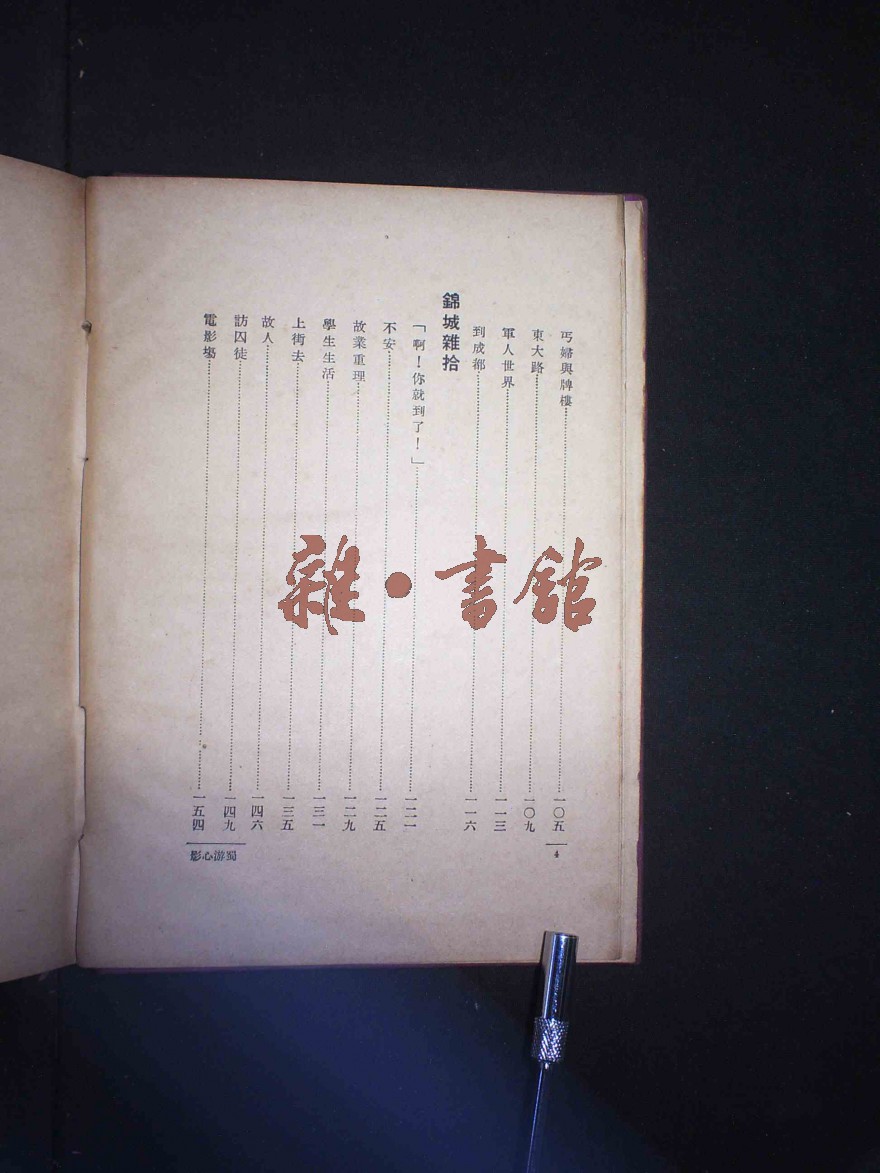 丐婦與牌樓……一〇五
東大路……一〇九
軍人世界……一一三
到成都……一一六
錦城雜拾
「啊！你就到了！」……一二一
不安……一二五
故業重理……一二九
學生生活……一三一
上街去……一三五
故人……一四六
訪囚徒……一四九
電影場……一五四
4
蜀游心影
雜·書館